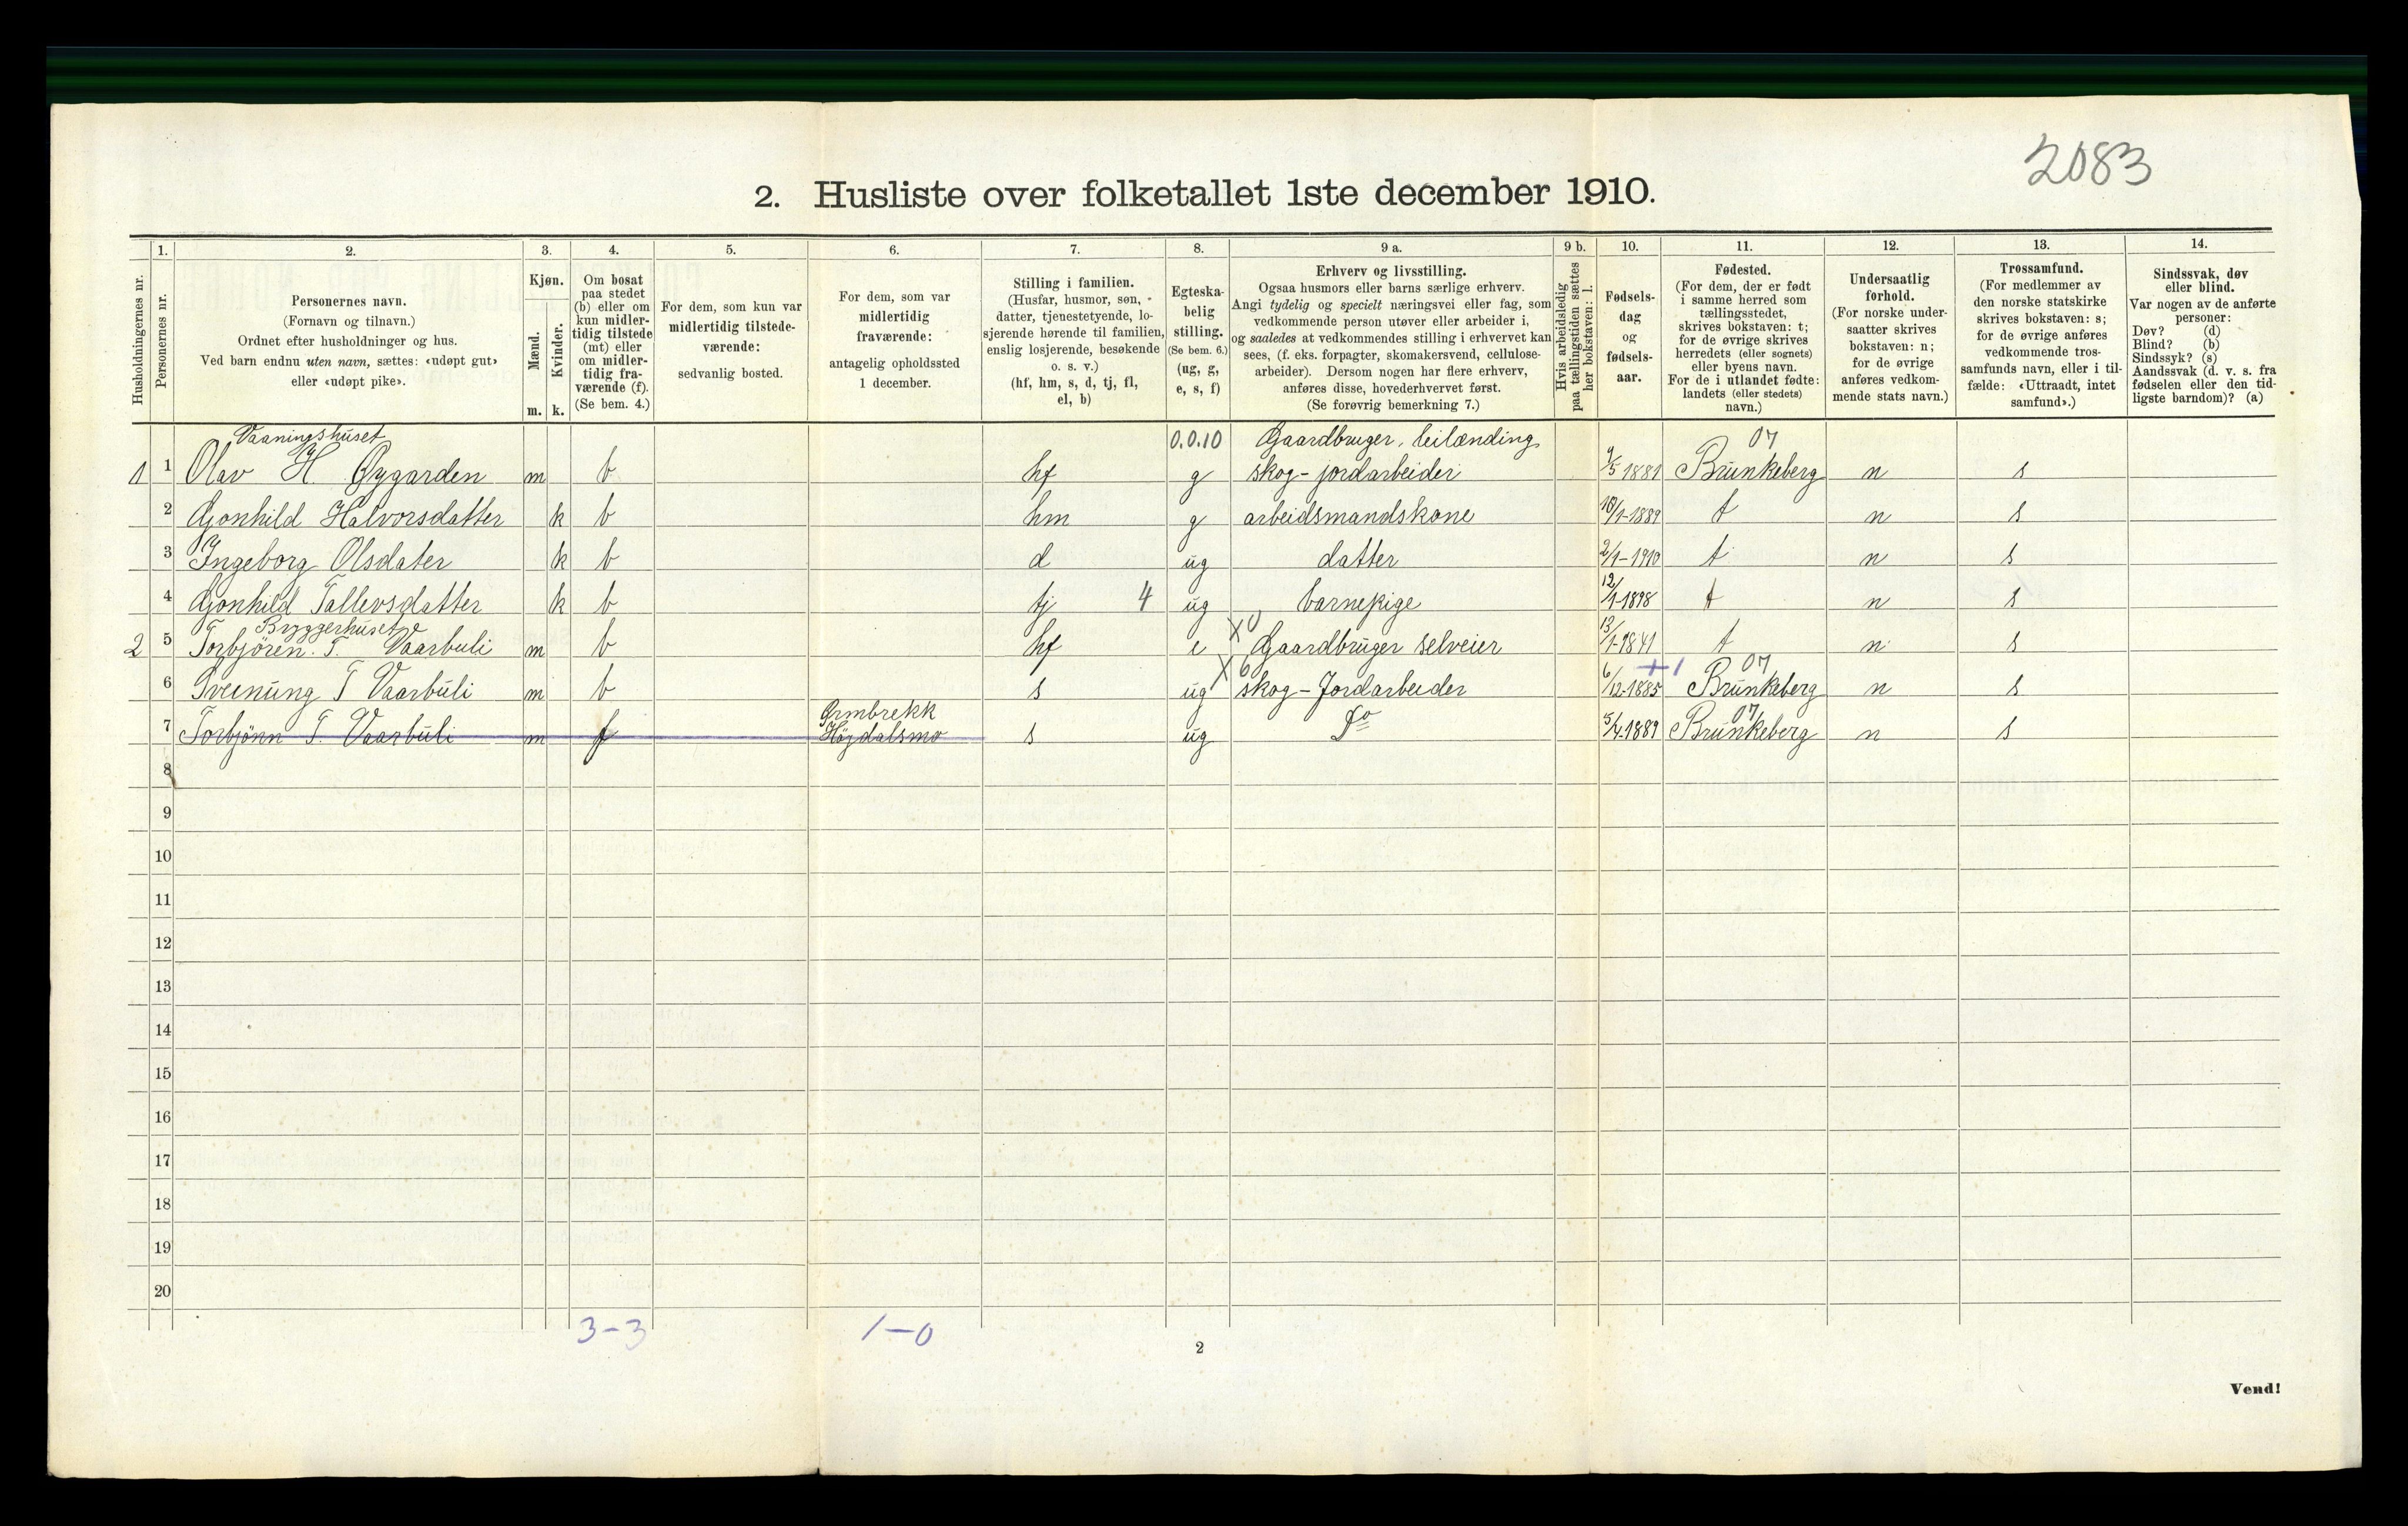 2083
2. Husliste over folketallet 1ste december 1910.
Husholdningernes nr.
1.
Personernes nr.
2.
Personernes navn.
(Fornavn og tilnavn.)
Ordnet efter husholdninger og hus.
Ved barn endnu uten navn, sættes: «udøpt gut»
eller «udøpt pike».
3.
Kjøn.
Mænd.
Kvinder.
m. k.
4.
Om bosat
paa stedet
(b) eller om
kun midler-
tidig tilstede
(mt) eller
om midler-
tidig fra-
værende (f).
(Se bem. 4.)
5.
For dem, som kun var
midlertidig tilstede-
værende:
sedvanlig bosted.
6.
For dem, som var
midlertidig
fraværende:
antagelig opholdssted
1 december.
7.
Stilling i familien.
(Husfar, husmor, søn,
datter, tjenestetyende, lo-
sjerende hørende til familien,
enslig losjerende, besøkende
o. s. v.)
(hf, hm, s, d, tj, fl,
el, b)
8.
Egteska-
belig
stilling.
(Se bem. 6.)
(ug, g,
e, s, f)
9 a.
Erhverv og livsstilling.
Ogsaa husmors eller barns særlige erhverv.
Angi tydelig og specielt næringsvei eller fag, som
vedkommende person utøver eller arbeider i,
og saaledes at vedkommendes stilling i erhvervet kan
sees, (f. eks. forpagter, skomakersvend, cellulose-
arbeider). Dersom nogen har flere erhverv,
anføres disse, hovederhvervet først.
(Se forøvrig bemerkning 7.)
9 b.
Hvis arbeidsledig
paa tællingstiden sættes
her bokstaven: l.
10.
Fødsels-
dag
og
fødsels-
aar.
11.
Fødested.
(For dem, der er født
i samme herred som
tællingsstedet,
skrives bokstaven: t;
for de øvrige skrives
herredets (eller sognets)
eller byens navn.
For de i utlandet fødte:
landets (eller stedets)
navn.)
12.
Undersaatlig
forhold.
(For norske under-
saatter skrives
bokstaven: n;
for de øvrige
anføres vedkom-
mende stats navn.)
13.
Trossamfund.
(For medlemmer av
den norske statskirke
skrives bokstaven: s;
for de øvrige anføres
vedkommende tros-
samfunds navn, eller i til-
fælde: «Uttraadt, intet
samfund».)
14.
Sindssvak, døv
eller blind.
Var nogen av de anførte
personer:
Døv? (d)
Blind? (b)
Sindssyk? (s)
Aandssvak (d. v. s. fra
fødselen eller den tid-
ligste barndom)? (a)
Vaaningshuset 0.0.10 Gaardbruger, leilænding 07
1 1 Olav H. Øygarden m b hf g skog-jordarbeider 9/5 1881 Brunkeberg n s
2 Gonhild Halvorsdatter k b hm g arbeidsmandskone 10/1-1889 t n s
3 Ingeborg Olsdater k b d ug datter 2/1-1910 t n s
4 Gonhild Tallevsdatter k b tj 4 ug barnepige 12/1-1898 t n s
Bryggerhuset
2 5 Torbjören T. Vaarbuli m b hf e X Gaardbruger selveier 13/1-1841 t n s
+1 07
6 Sveinung T Vaarbuli m b s ug X skog-Jordarbeider 6/12-1885 Brunkeberg n s
Ormbrekk 07
7 Torbjönn T. Vaarbuli m f Höydalsmo s ug Do 5/4-1889 Brunkeberg n s
8
9
10
11
12
13
14
15
16
17
18
19
20
3-3 1-0
2
Vend!